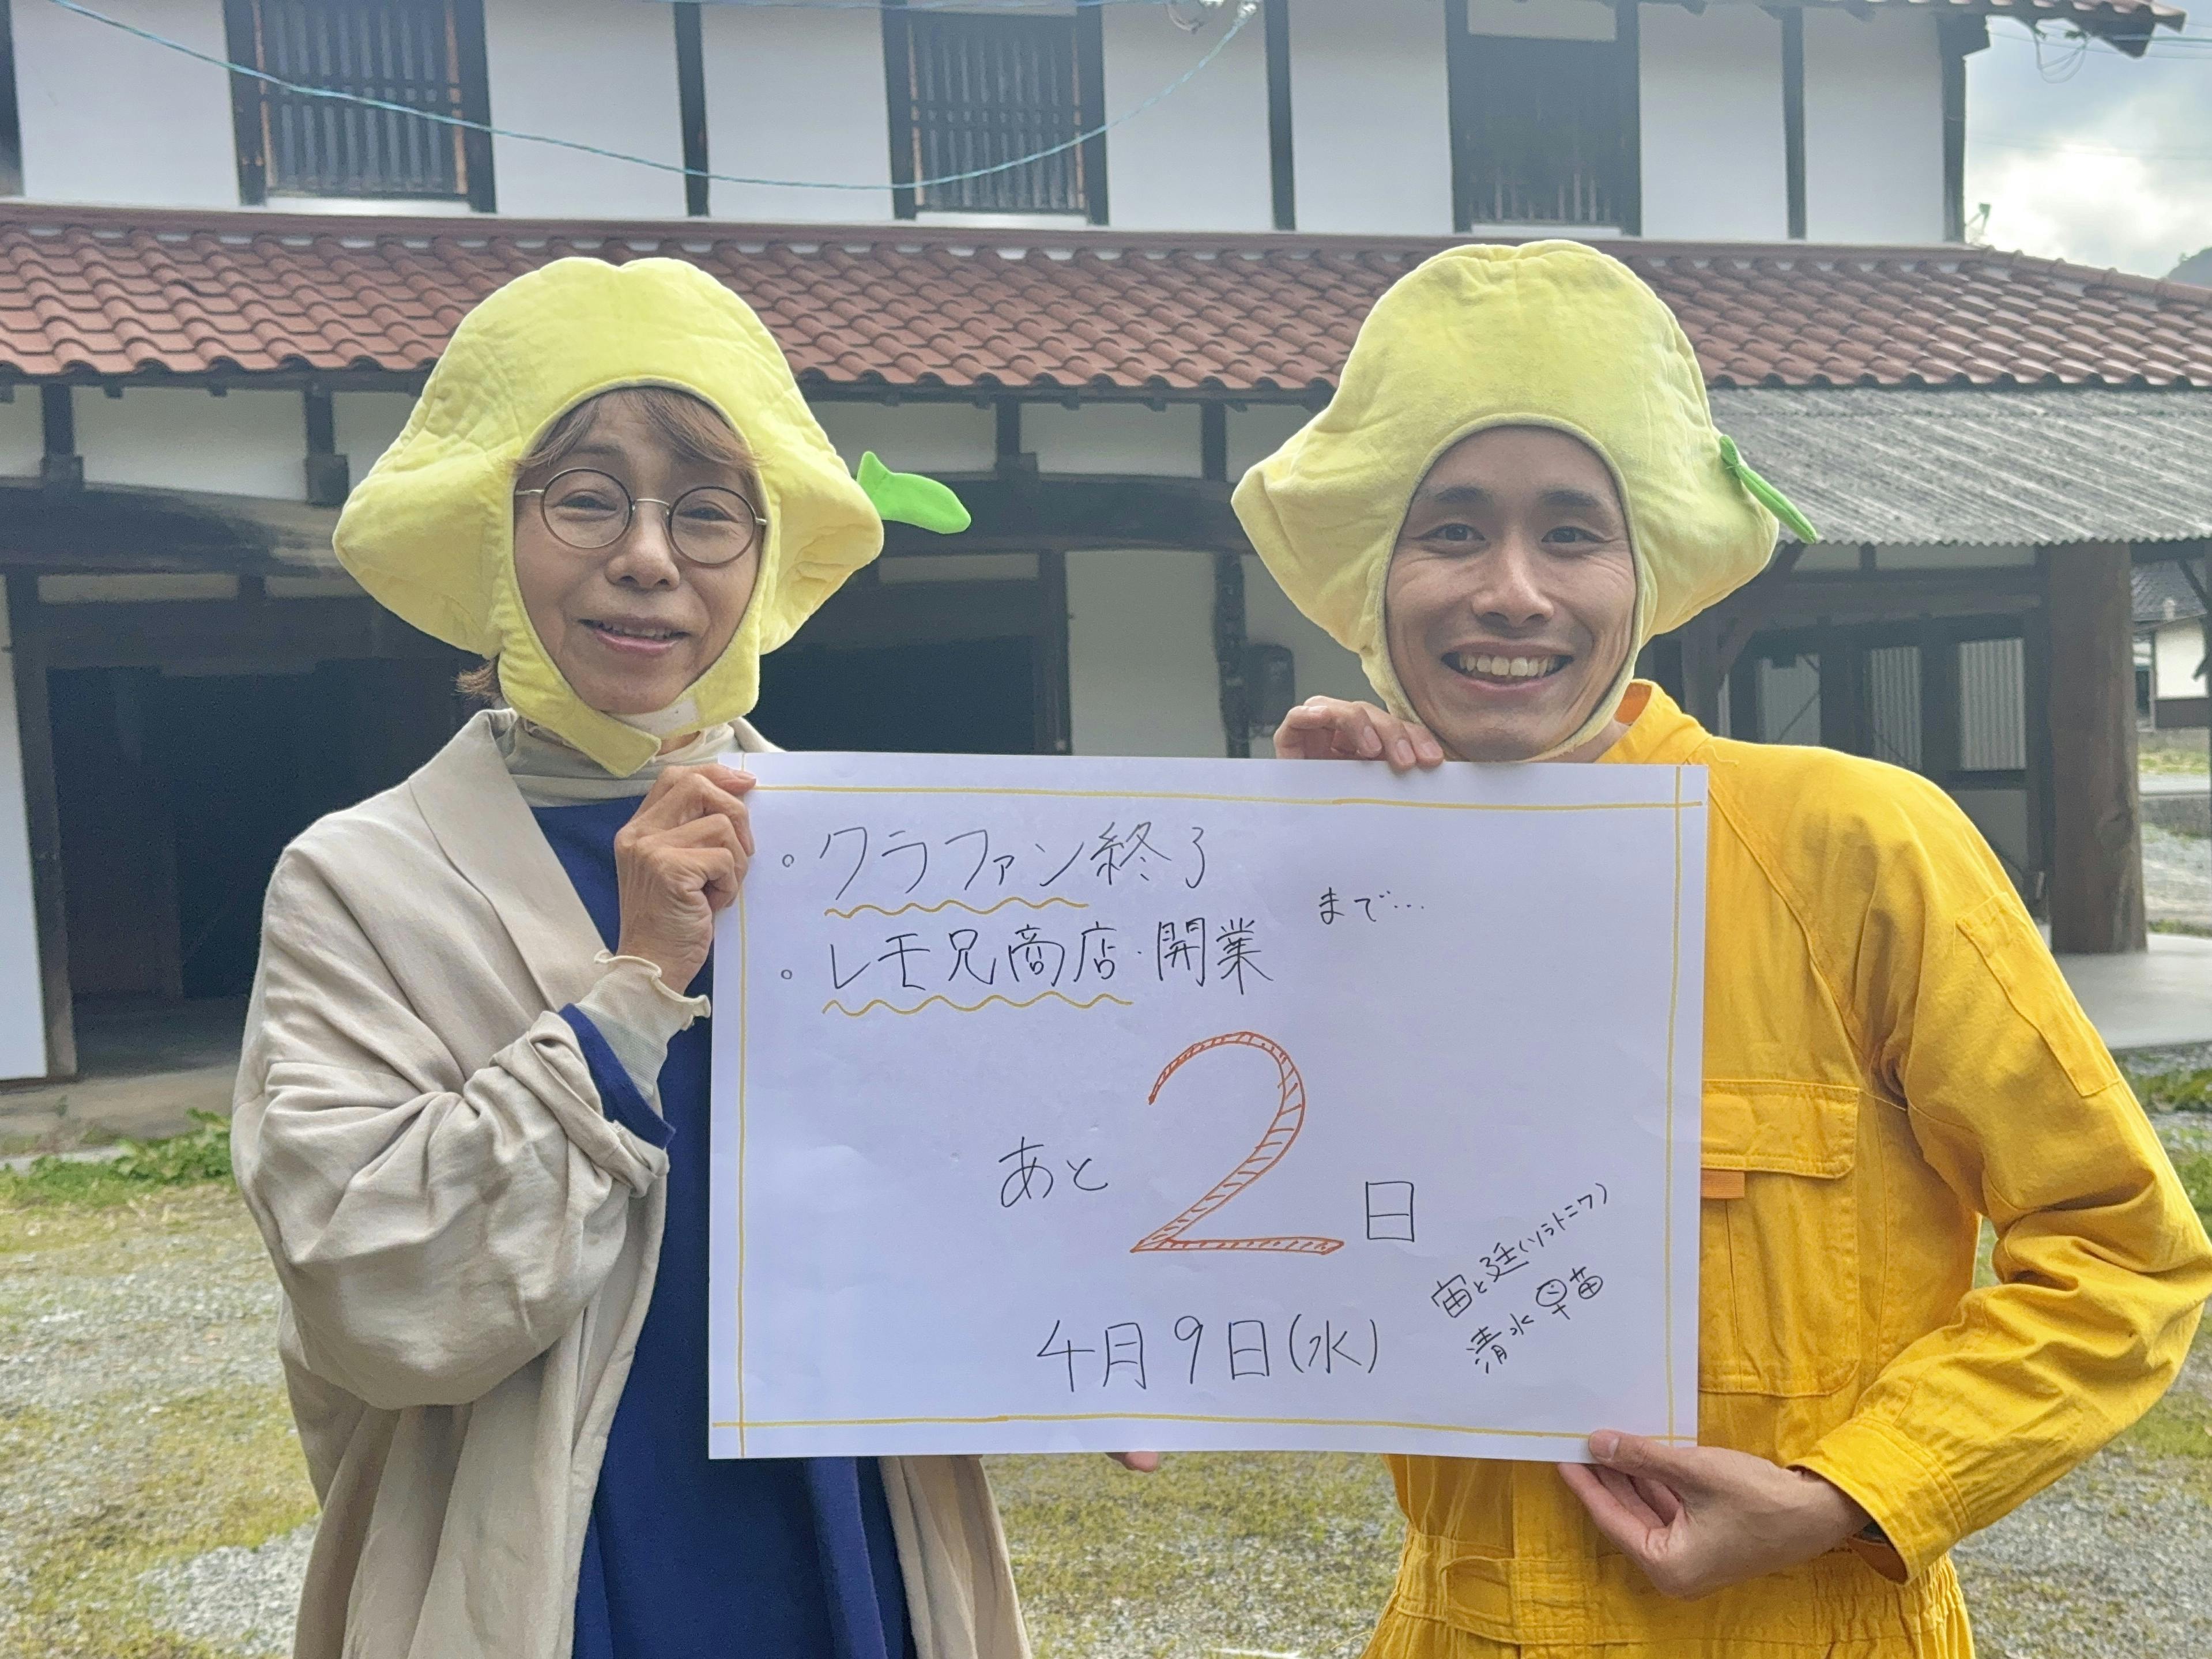 ・クラファン終了
まで…
・レモ兄商店・開業
あと2日
4月9日(水)
宙と廷(ソラトニワ)
清水早苗